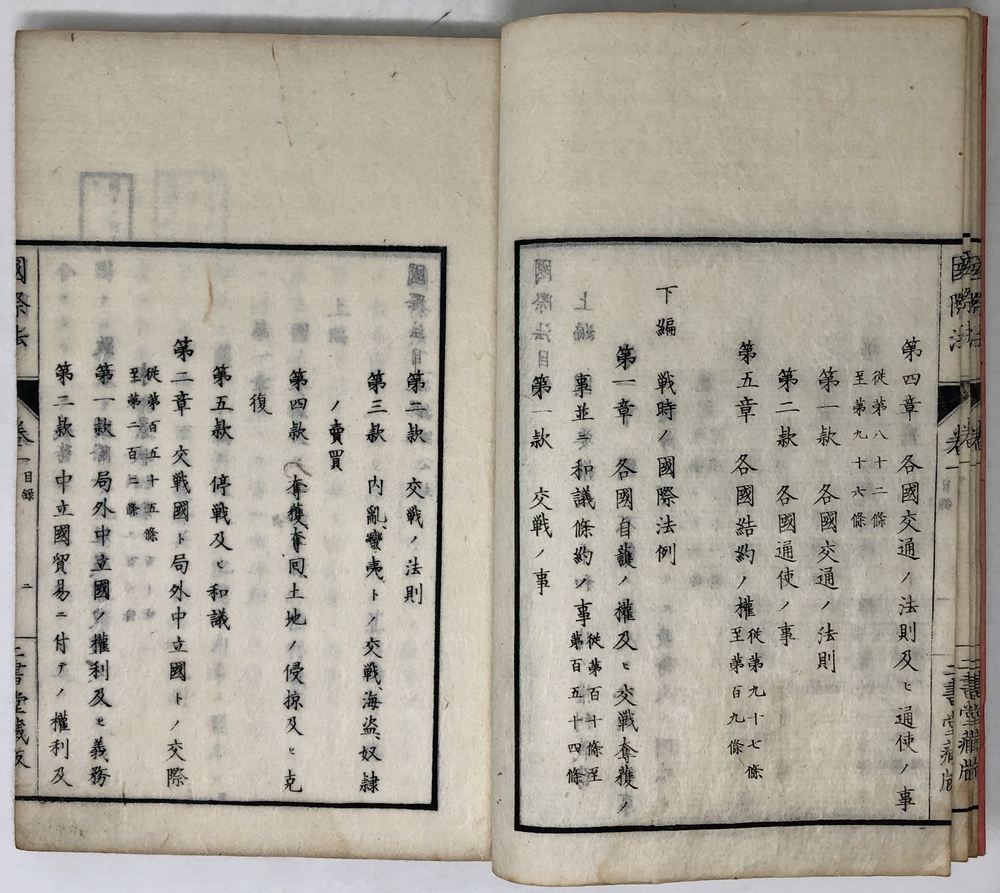 第四章 各國交通ノ法則及ヒ通使ノ事
從第八十二條
至第九十六條
第一款 各國交通ノ法則
第二款 各國通使ノ事
第五章 各國結約ノ權
從第九十七條
至第百九條
下編 戰時ノ國際法例
第一章 各國自護ノ權及ヒ交戰奪獲ノ
事並ニ和議條約ノ事
從第百十條至
第百五十四條
第一款 交戰ノ事
第二款 交戰ノ法則
第三款 內亂、蠻夷トノ交戰、海盜、奴隷
ノ賣買
第四款 奪獲、奪回、土地ノ侵掠及ヒ克
復
第五款 停戰及ヒ和議
第二章 交戰國ト局外中立國トノ交際
從第百五十五條
至第二百二條
第一款 局外中立國ノ權利及ヒ義務
第二款 中立國貿易ニ付テノ權利及
國際法
卷一
目錄
二
二書堂藏版